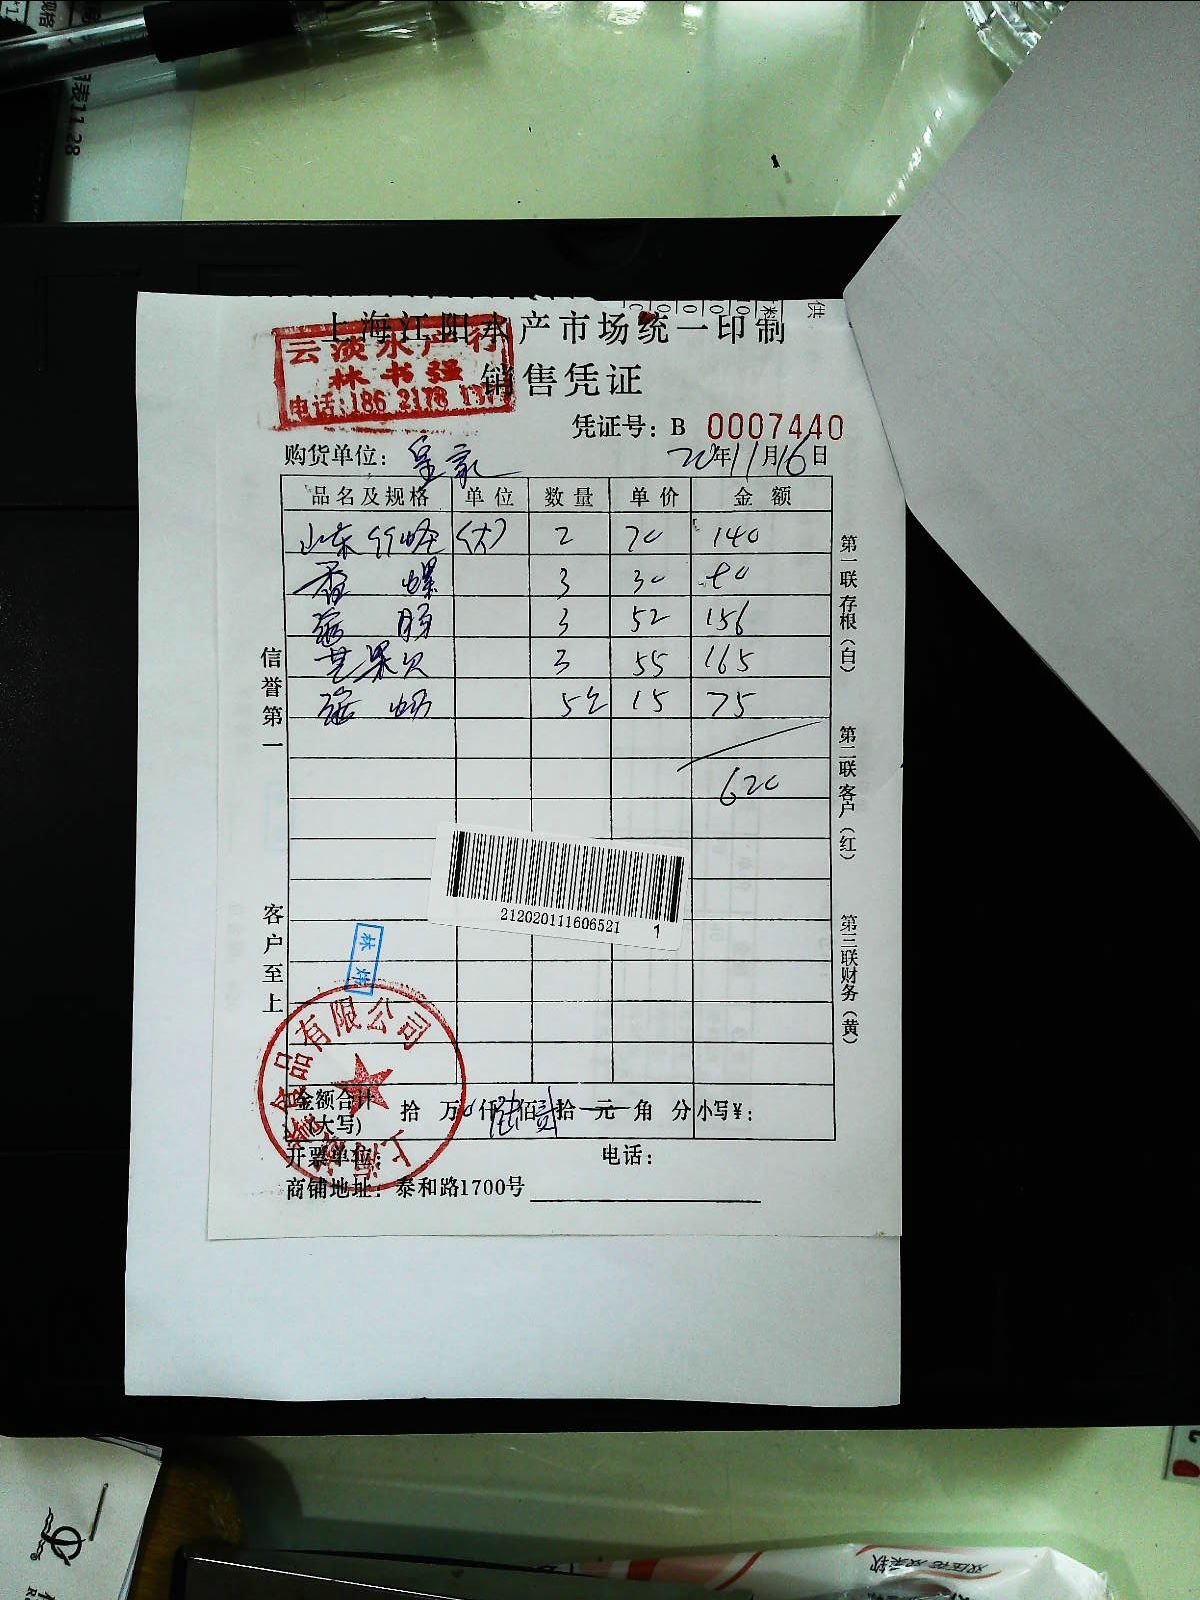 上海江阳水产市场统一印制
云淡水产行
林书强
电话:186 2178 137
销售凭证
凭证号: B 0007440
购货单位: 皇家
20年11月16日
品名及规格 单位 数量 单价 金额
山东竹蛏 (大) 2 70 140
香螺 3 30
海肠 3 52 156
芒果贝 3 55 165
5 15 75
620
信誉第一
客户至上
第一联存根(白)
第二联客户(红)
第三联财务(黄)
212020111606521 1
食品有限公司
金额合计(大写) 拾 万 0 仟 陆 佰 贰 拾 元 角 分 小写¥:
开票单位: 电话:
商铺地址: 泰和路1700号